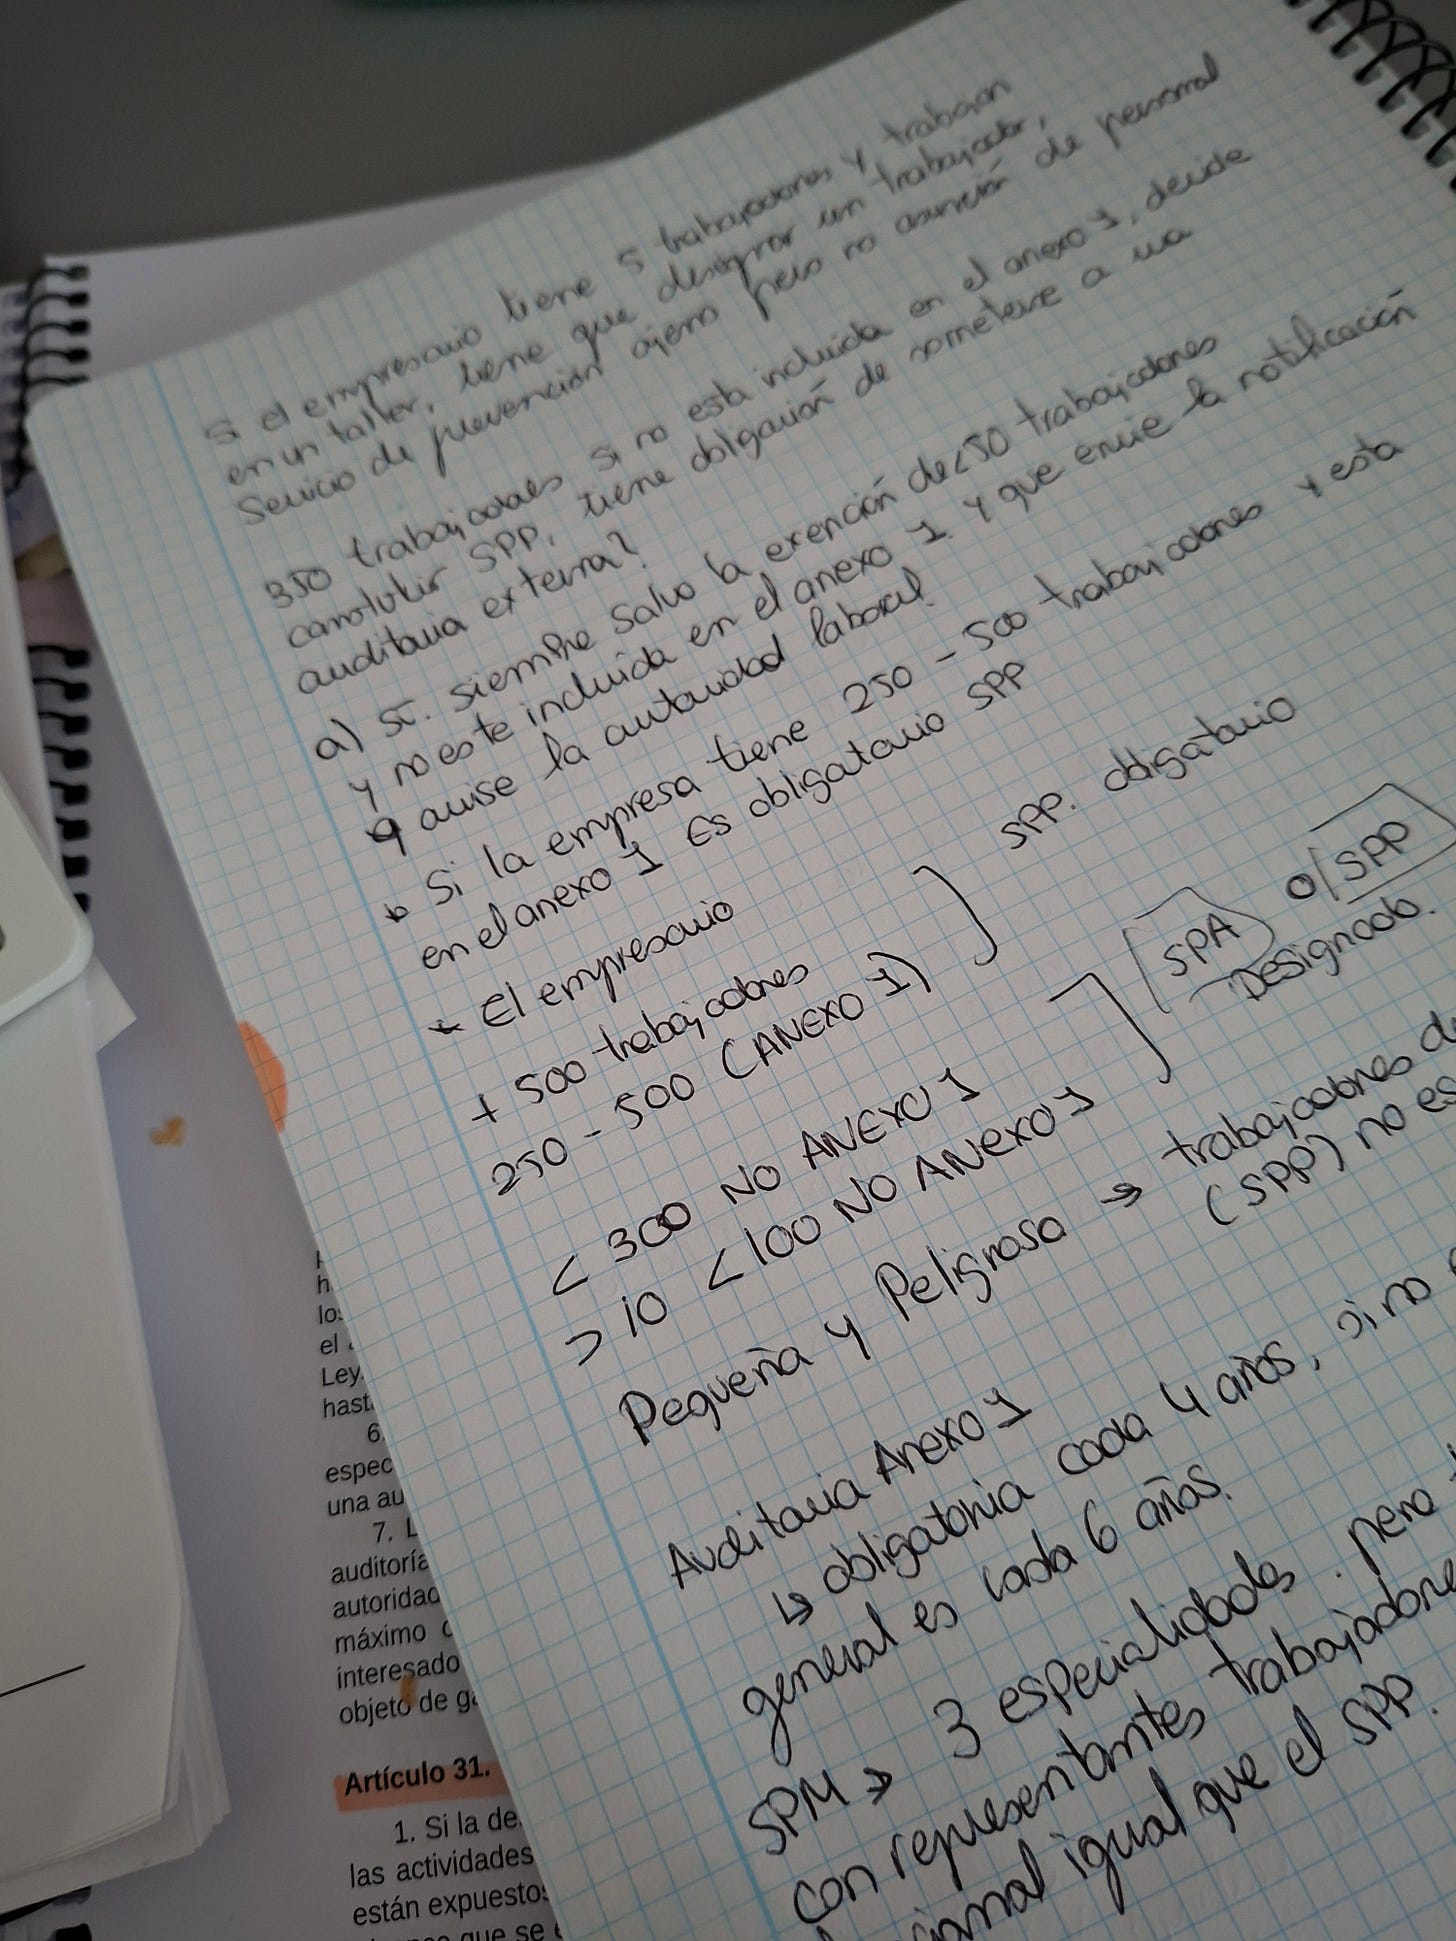 Si el empresario tiene 5 trabajadores y trabajan
en un taller, tiene que designar un trabajador,
Servicio de prevención ajeno pero no asunción de personal
350 trabajadores si no esta incluida en el anexo 1, decide
SPP, tiene obligación de someterse a una
auditoria externa?
a) SI. siempre salvo la exención de <50 trabajadores
y no este incluida en el anexo 1 y que envie la notificación
avise la autoridad laboral.
Si la empresa tiene 250 - 500 trabajadores y esta
en el anexo 1 Es obligatorio SPP
El empresario
+ 500 trabajadores
SPP. obligatorio
250 - 500 (ANEXO 1)
< 300 NO ANEXO 1
SPA o SPP
Designado.
> 10 < 100 NO ANEXO 1
Pequeña y Peligrosa → trabajadores
(SPP) no es
Auditoria Anexo 1
↳ obligatoria cada 4 años, sino
general es cada 6 años.
SPM → 3 especialidades. pero
con representantes trabajadores
igual que el SPP.
h
los
el
Ley
hast
6.
espec
una au
7. L
auditoría
autoridad
máximo
interesado
objeto de ga
Artículo 31.
1. Si la de
las actividades
están expuestos
que se